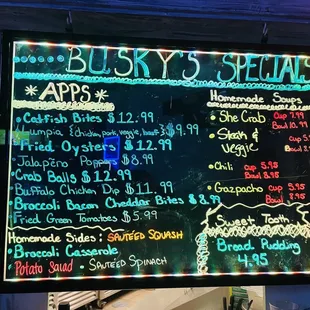 BUSKY'S SPECIALS
*APPS*
• Catfish Bites $12.99
Lumpia $9.99
Fried Oysters $12.99
Jalapeño Poppers $8.99
• Crab Balls $12.99
Buffalo Chicken Dip $11.99
• Broccoli Bacon Cheddar Bites $8.99
Fried Green Tomatoes $5.99
Homemade Sides: SAUTÉED SQUASH
• Broccoli Casserole
Potato Salad • SAUTÉED SPINACH
Homemade Soups
• She Crab Cup 7.99
Bowl 10.99
• Steak & Veggie
• Chili Cup 5.95
Bowl 8.95
• Gazpacho Cup 5.95
Bowl
Sweet Tooth
Bread Pudding
4.95